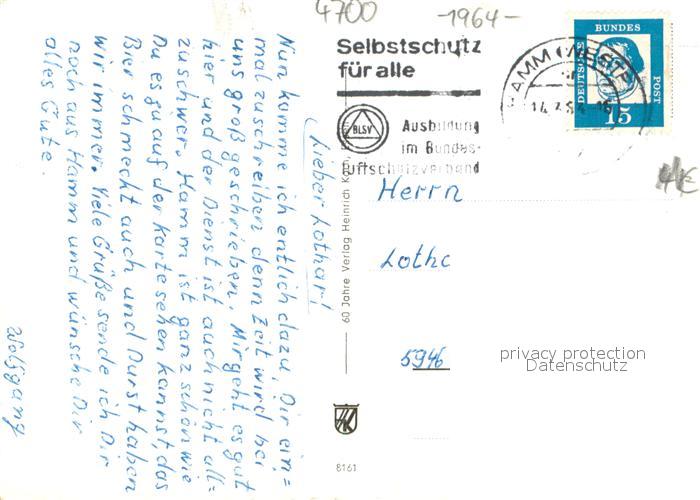 4700
-1964-
Selbstschutz
für alle
BLSV
Ausbildung
im Bundes-
luftschutzverband
HAMM (WESTF
DEUTSCHE
BUNDES
POST
15
4€
Lieber Lothar!
Nun komme ich entlich dazu, Dir ein=
mal zuschreiben denn Zeit wird bei
uns groß geschrieben. Mir geht es gut
hier und der Dienst ist auch nicht all=
zuschwer. Hamm ist ganz schön wie
Du es ja auf der Karte sehen kannst, das
Bier schmeckt auch und Durst haben
wir immer. Viele Grüße sende ich Dir
noch aus Hamm und wünsche Dir
alles Gute.
Wolfgang
60 Jahre Verlag Heinrich
8161
Herrn
Lotha
5946
privacy protection
Datenschutz